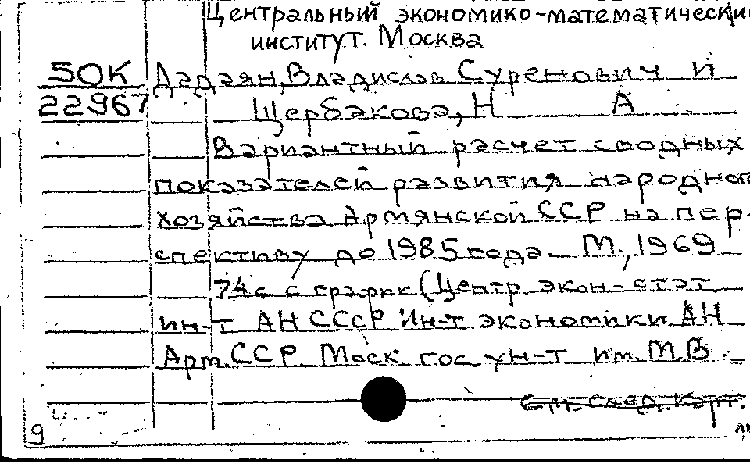 Центральный экономико-математический
институт. Москва
50К Дадаян, Владислав Суренович и
22967 Щербакова, Н А
Вариантный расчет сводных
показателей развития народного
хозяйства Армянской ССР на пер-
спективу до 1985 года М., 1969
74 с с график (Центр. экон-стат
ин-т АН СССР Ин-т экономики АН
Арм. ССР Моск гос ун-т им. М В
См. след. карт.
9